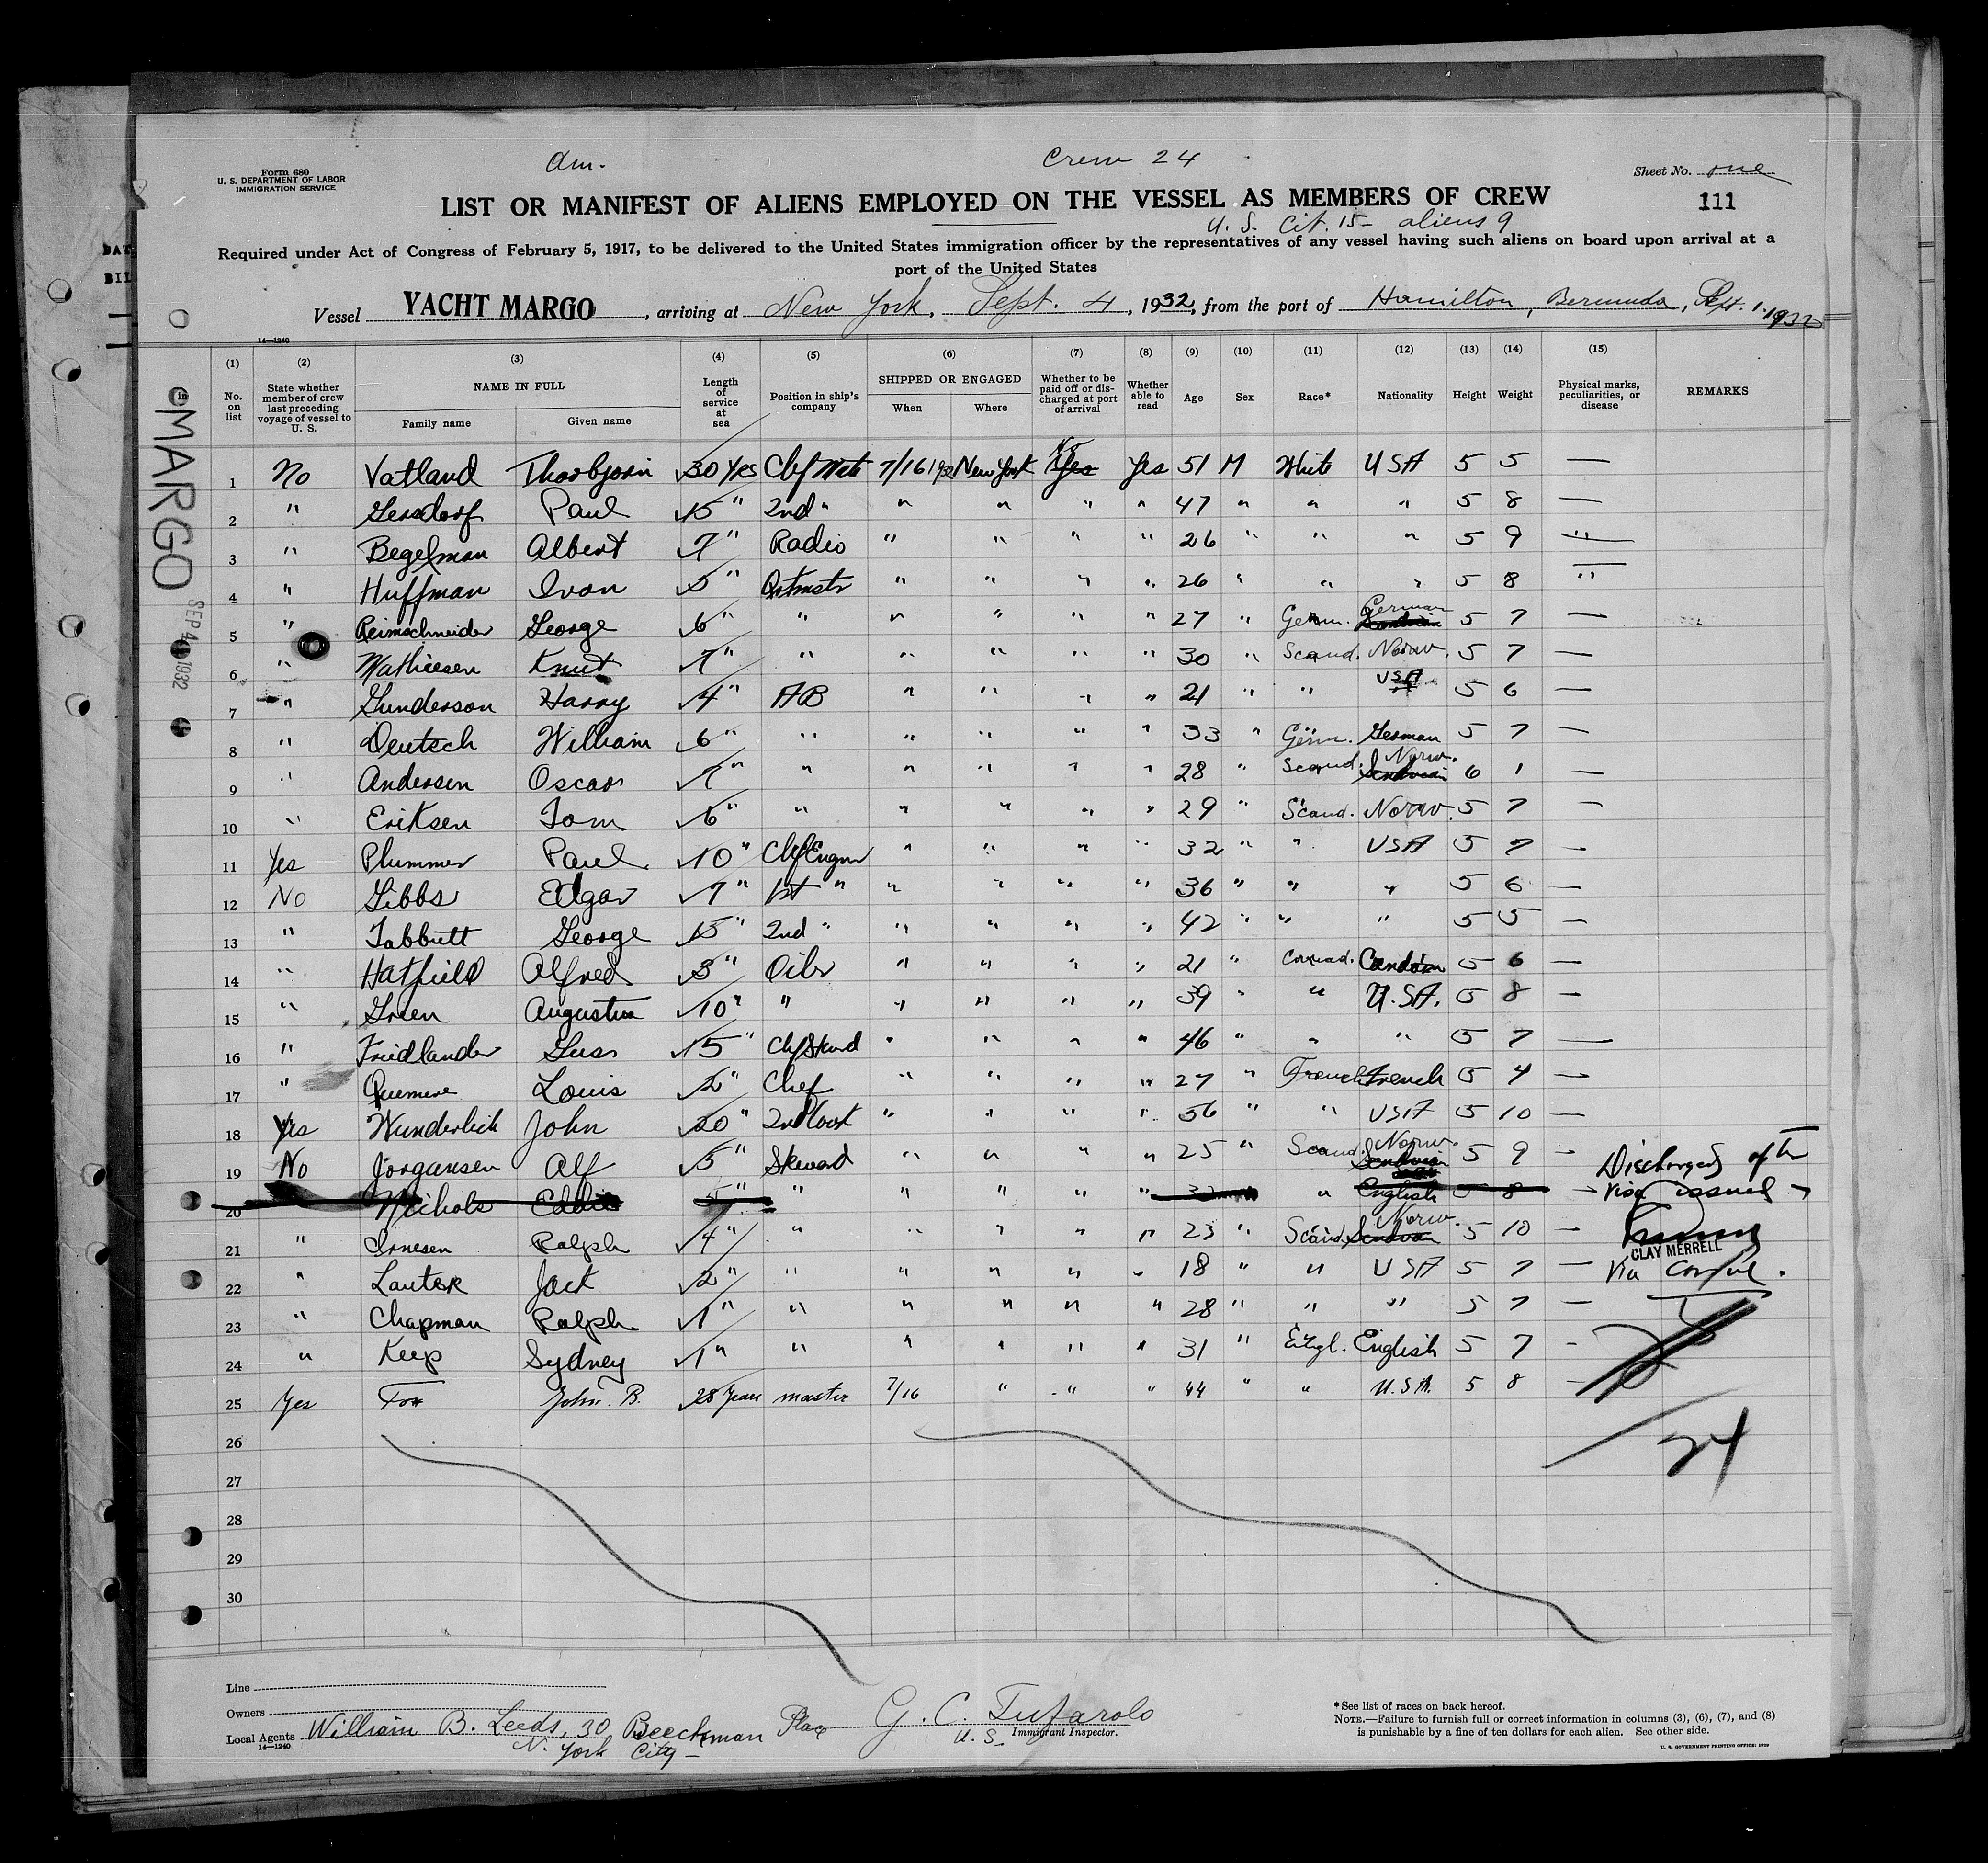 Form 680
U. S. DEPARTMENT OF LABOR
IMMIGRATION SERVICE
Am.
Crew 24
Sheet No. one
LIST OR MANIFEST OF ALIENS EMPLOYED ON THE VESSEL AS MEMBERS OF CREW
111
U. S. Cit. 15 - aliens 9
Required under Act of Congress of February 5, 1917, to be delivered to the United States immigration officer by the representatives of any vessel having such aliens on board upon arrival at a
port of the United States
Vessel YACHT MARGO, arriving at New York, Sept. 4, 1932, from the port of Hamilton, Bermuda, Sept. 1. 1932
14—1240
(1) (2) (3) (4) (5) (6) (7) (8) (9) (10) (11) (12) (13) (14) (15)
No. on list
State whether member of crew last preceding voyage of vessel to U. S.
NAME IN FULL
Family name Given name
Length of service at sea
Position in ship's company
SHIPPED OR ENGAGED
When Where
Whether to be paid off or discharged at port of arrival
Whether able to read
Age Sex Race* Nationality Height Weight
Physical marks, peculiarities, or disease
REMARKS
MARGO
SEP 4 1932
1 No Vatland Thorbjorn 30 Yes Chf Mate 7/16 1932 New York Yes Yes 51 M White USA 5 5 —
2 " Gersdorf Paul 15 " 2nd " " " " " 47 " " " 5 8 —
3 " Begelman Albert 7 " Radio " " " " 26 " " " 5 9 "
4 " Huffman Ivan 5 " Qrtmstr " " " " 26 " " " 5 8 "
5 " Reimschneider George 6 " " " " " " 27 " Germ. German 5 7 —
6 " Mathiesen Knut 7 " " " " " " 30 " Scand. Norw. 5 7 —
7 " Gunderson Harry 4 " AB " " " " 21 " " USA 5 6 —
8 " Deutsch William 6 " " " " " " 33 " Germ. German 5 7 —
9 " Andersen Oscar 7 " " " " " " 28 " Scand. Norw. 6 1 —
10 " Eriksen Tom 6 " " " " " " 29 " Scand. Norw. 5 7 —
11 Yes Plummer Paul 10 " Chf Engnr " " " " 32 " " USA 5 7 —
12 No Gibbs Edgar 7 " 1st " " " " " 36 " " " 5 6 —
13 " Tabbutt George 15 " 2nd " " " " " 42 " " " 5 5 —
14 " Hatfield Alfred 3 " Oiler " " " " 21 " 5 6 —
15 " Green Augustus 10 " " " " " " 39 " " U.S.A. 5 8 —
16 " Friedlander Guss 15 " Chf Stwrd " " " " 46 " " " 5 7 —
17 " Quemere Louis 2 " Chef " " " " 27 " French French 5 4 —
18 Yes Wunderlich John 20 " 2nd Cook " " " " 56 " " USA 5 10 —
19 No Jorgansen Alf 5 " Steward " " " " 25 " Scand. Norw. 5 9 — Discharged after
20 Nichols Eddie 5 " " " " " " " English 5 8 — Visa issued
21 " Ralph 4 " " " " " " 23 " Scand. Norw. 5 10 —
CLAY MERRELL
22 " Lauter Jack 2 " " " " " " 18 " " USA 5 7 — Via Consul.
23 " Chapman Ralph 1 " " " " " " 28 " " " 5 7 —
24 " Keep Sydney 1 " " " " " " 31 " Engl. English 5 7 -
25 Yes Fox John. B. 28 Years master 7/16 " " " 44 " " U.S.A. 5 8 —
24
26
27
28
29
30
Line
Owners
Local Agents William B. Leeds, 30 Beeckman Place
N. York City -
14—1240
G. C. Tufarolo
U. S. Immigrant Inspector.
*See list of races on back hereof.
NOTE.—Failure to furnish full or correct information in columns (3), (6), (7), and (8)
is punishable by a fine of ten dollars for each alien. See other side.